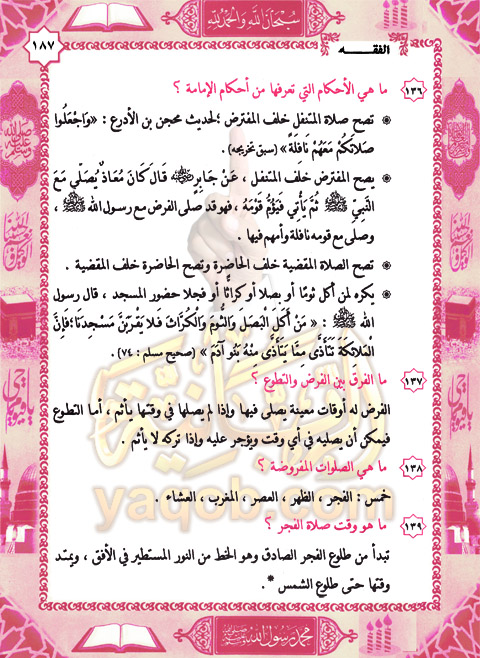 سبحان الله والحمد لله
الفقه
١٨٧
١٣٦ ما هي الأحكام التي تعرفها من أحكام الإمامة ؟
تصح صلاة المتنفل خلف المفترض ؛ لحديث محجن بن الأدرع : «وَاجْعَلُوا
صَلَاتَكُمْ مَعَهُمْ نَافِلَةً» (سبق تخريجه) .
يصح المفترض خلف المتنفل ، عَنْ جَابِرٍ ﷺ قَالَ كَانَ مُعَاذٌ يُصَلِّي مَعَ
النَّبِيِّ ﷺ ثُمَّ يَأْتِي فَيَؤُمُّ قَوْمَهُ ، فهو قد صلى الفرض مع رسول الله ﷺ ،
وصلى مع قومه نافلة وأمهم فيها .
تصح الصلاة المقضية خلف الحاضرة وتصح الحاضرة خلف المقضية .
يكره لمن أكل ثومًا أو بصلا أو كراثًا أو فجلا حضور المسجد ، قال رسول
الله ﷺ : « مَنْ أَكَلَ الْبَصَلَ وَالثُّومَ وَالْكُرَّاثَ فَلَا يَقْرَبَنَّ مَسْجِدَنَا ؛ فَإِنَّ
الْمَلَائِكَةَ تَتَأَذَّى مِمَّا يَتَأَذَّى مِنْهُ بَنُو آدَمَ » (صحيح مسلم : ٧٤) .
١٣٧ ما الفرق بين الفرض والتطوع ؟
الفرض له أوقات معينة يصلى فيها وإذا لم يصلها في وقتها يأثم ، أما التطوع
فيمكن أن يصليه في أي وقت ويؤجر عليه وإذا تركه لا يأثم .
١٣٨ ما هي الصلوات المفروضة ؟
خمس : الفجر ، الظهر ، العصر ، المغرب ، العشاء .
١٣٩ ما هو وقت صلاة الفجر ؟
تبدأ من طلوع الفجر الصادق وهو الخط من النور المستطير في الأفق ، ويمتد
وقتها حتى طلوع الشمس *.
yaqob.com
محمد رسول الله